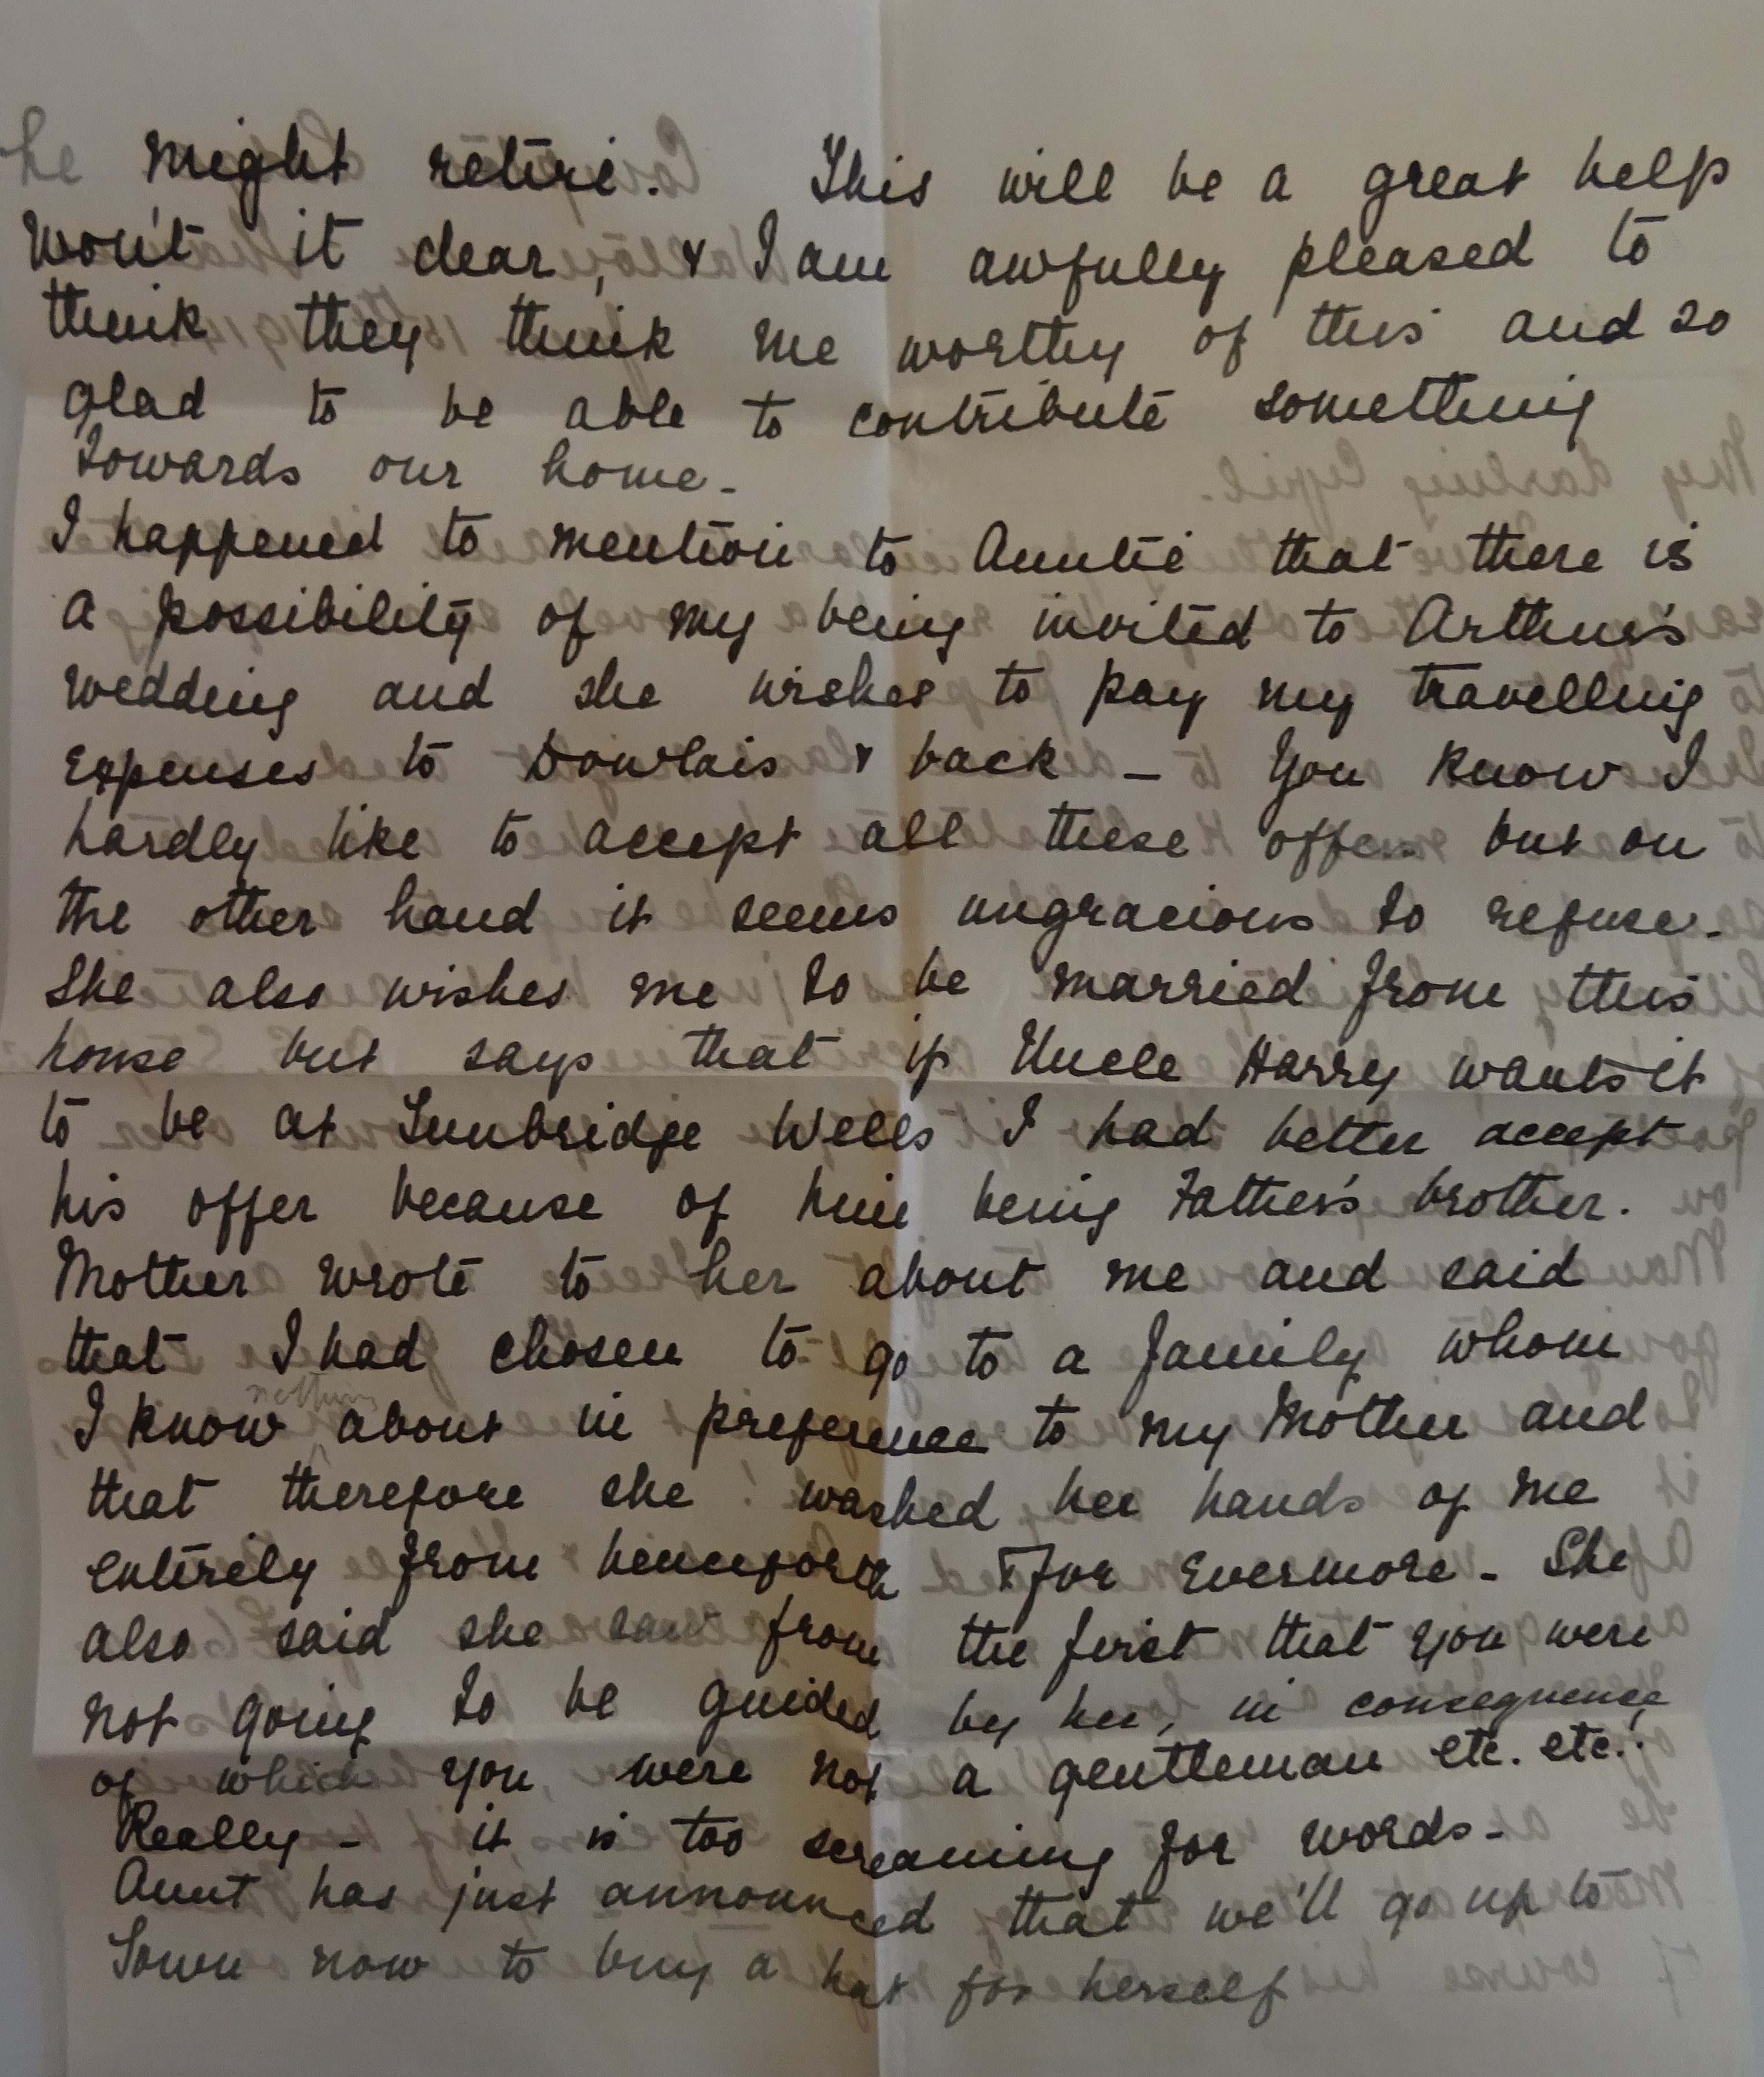 he might retire. This will be a great help
won't it dear, & I am awfully pleased to
think they think me worthy of this and so
glad to be able to contribute something
towards our home -
I happened to mention to Auntie that there is
a possibility of my being invited to Arthur's
wedding and she wishes to pay my travelling
expenses to Dowlais & back - You know I
hardly like to accept all these offers but on
the other hand it seems ungracious to refuse -
She also wishes me to be married from this
house but says that if Uncle Harry wants it
to be at Tunbridge Wells I had better accept
his offer because of him being Father's brother.
Mother wrote to her about me and said
that I had chosen to go to a family whom
I know nothing about in preference to my Mother and
that therefore she ! washed her hands of me
entirely from henceforth & for evermore - She
also said she saw from the first that you were
not going to be guided by her, in consequence
of which you were not a gentleman etc. etc.!
Really - it is too screaming for words -
Aunt has just announced that we'll go up to
Town now to buy a hat for herself